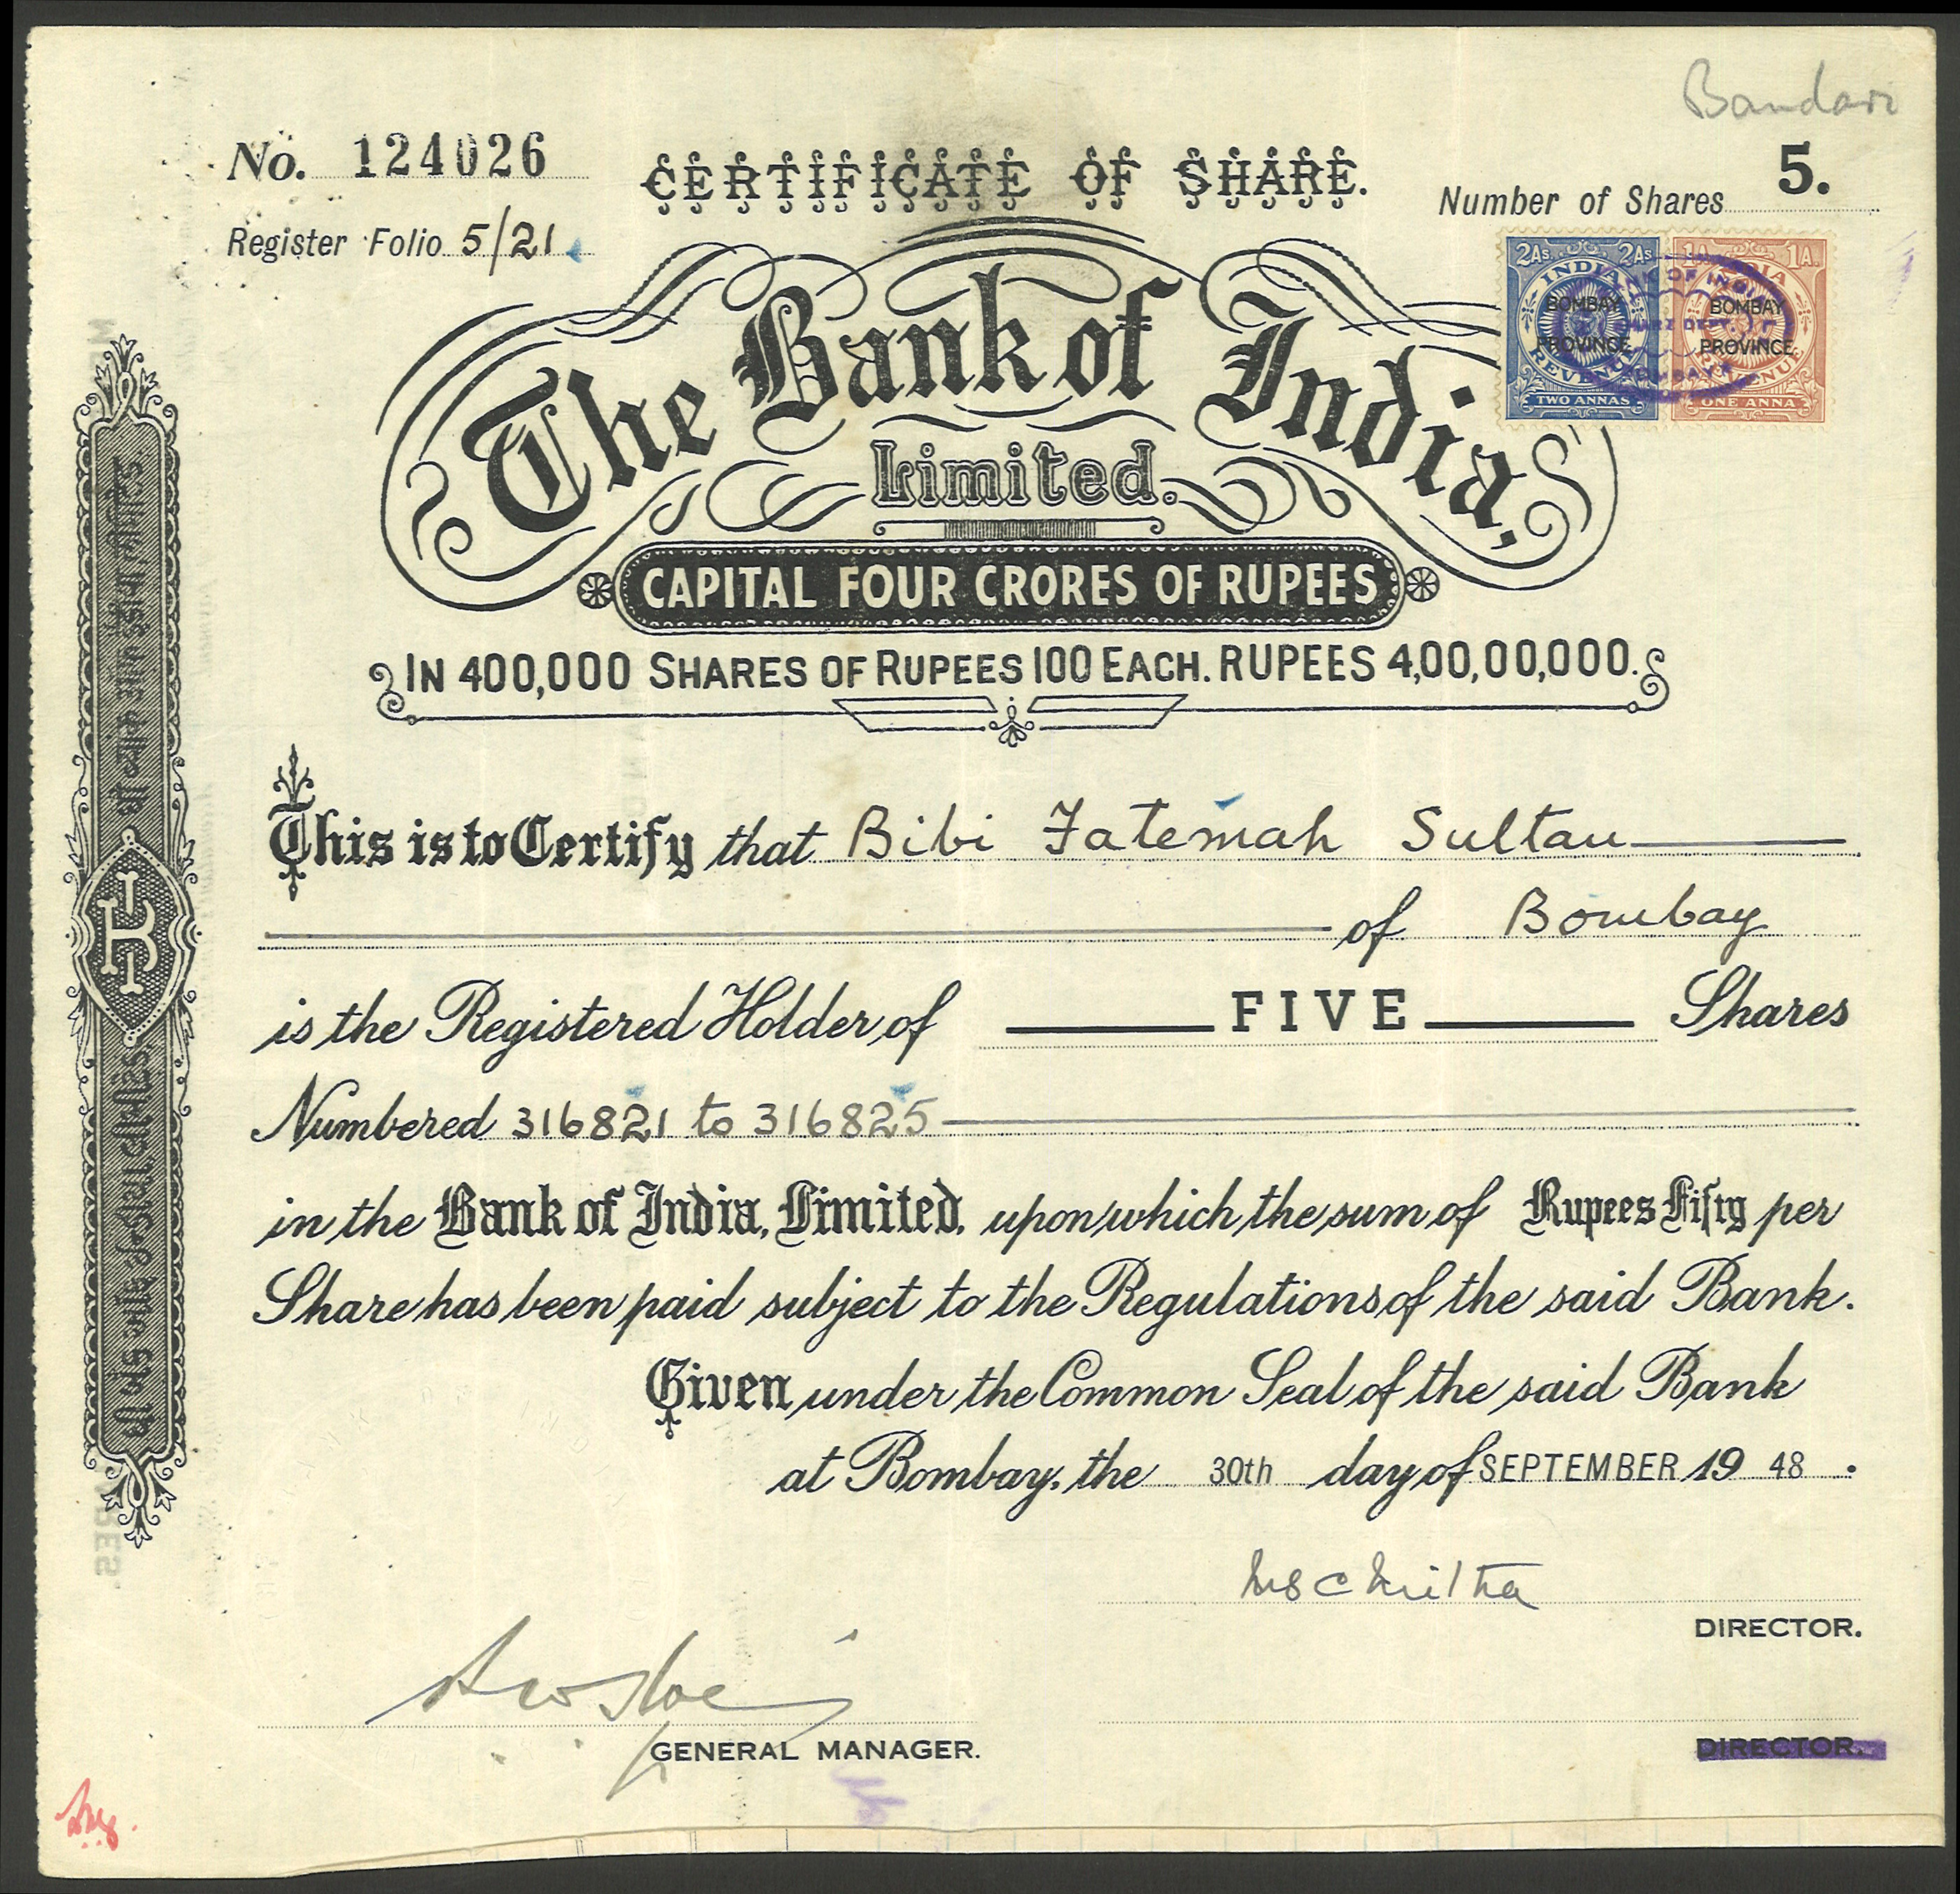 Bandari
No. 124026
CERTIFICATE OF SHARE.
Number of Shares 5.
Register Folio 5/21
2As. 2As
INDIA
BOMBAY
PROVINCE
REVENUE
TWO ANNAS
1A. 1A.
INDIA
BOMBAY
PROVINCE
REVENUE
ONE ANNA
BANK OF INDIA
SHARE DEPT.
BOMBAY
The Bank of India,
Limited.
CAPITAL FOUR CRORES OF RUPEES
IN 400,000 SHARES OF RUPEES 100 EACH. RUPEES 4,00,00,000.
This is to Certify that Bibi Fatemah Sultan
of Bombay
is the Registered Holder of FIVE Shares
Numbered 316821 to 316825
in the Bank of India, Limited, upon which the sum of Rupees Fifty per
Share has been paid subject to the Regulations of the said Bank.
Given under the Common Seal of the said Bank
at Bombay, the 30th day of SEPTEMBER 1948.
DIRECTOR.
GENERAL MANAGER.
DIRECTOR.